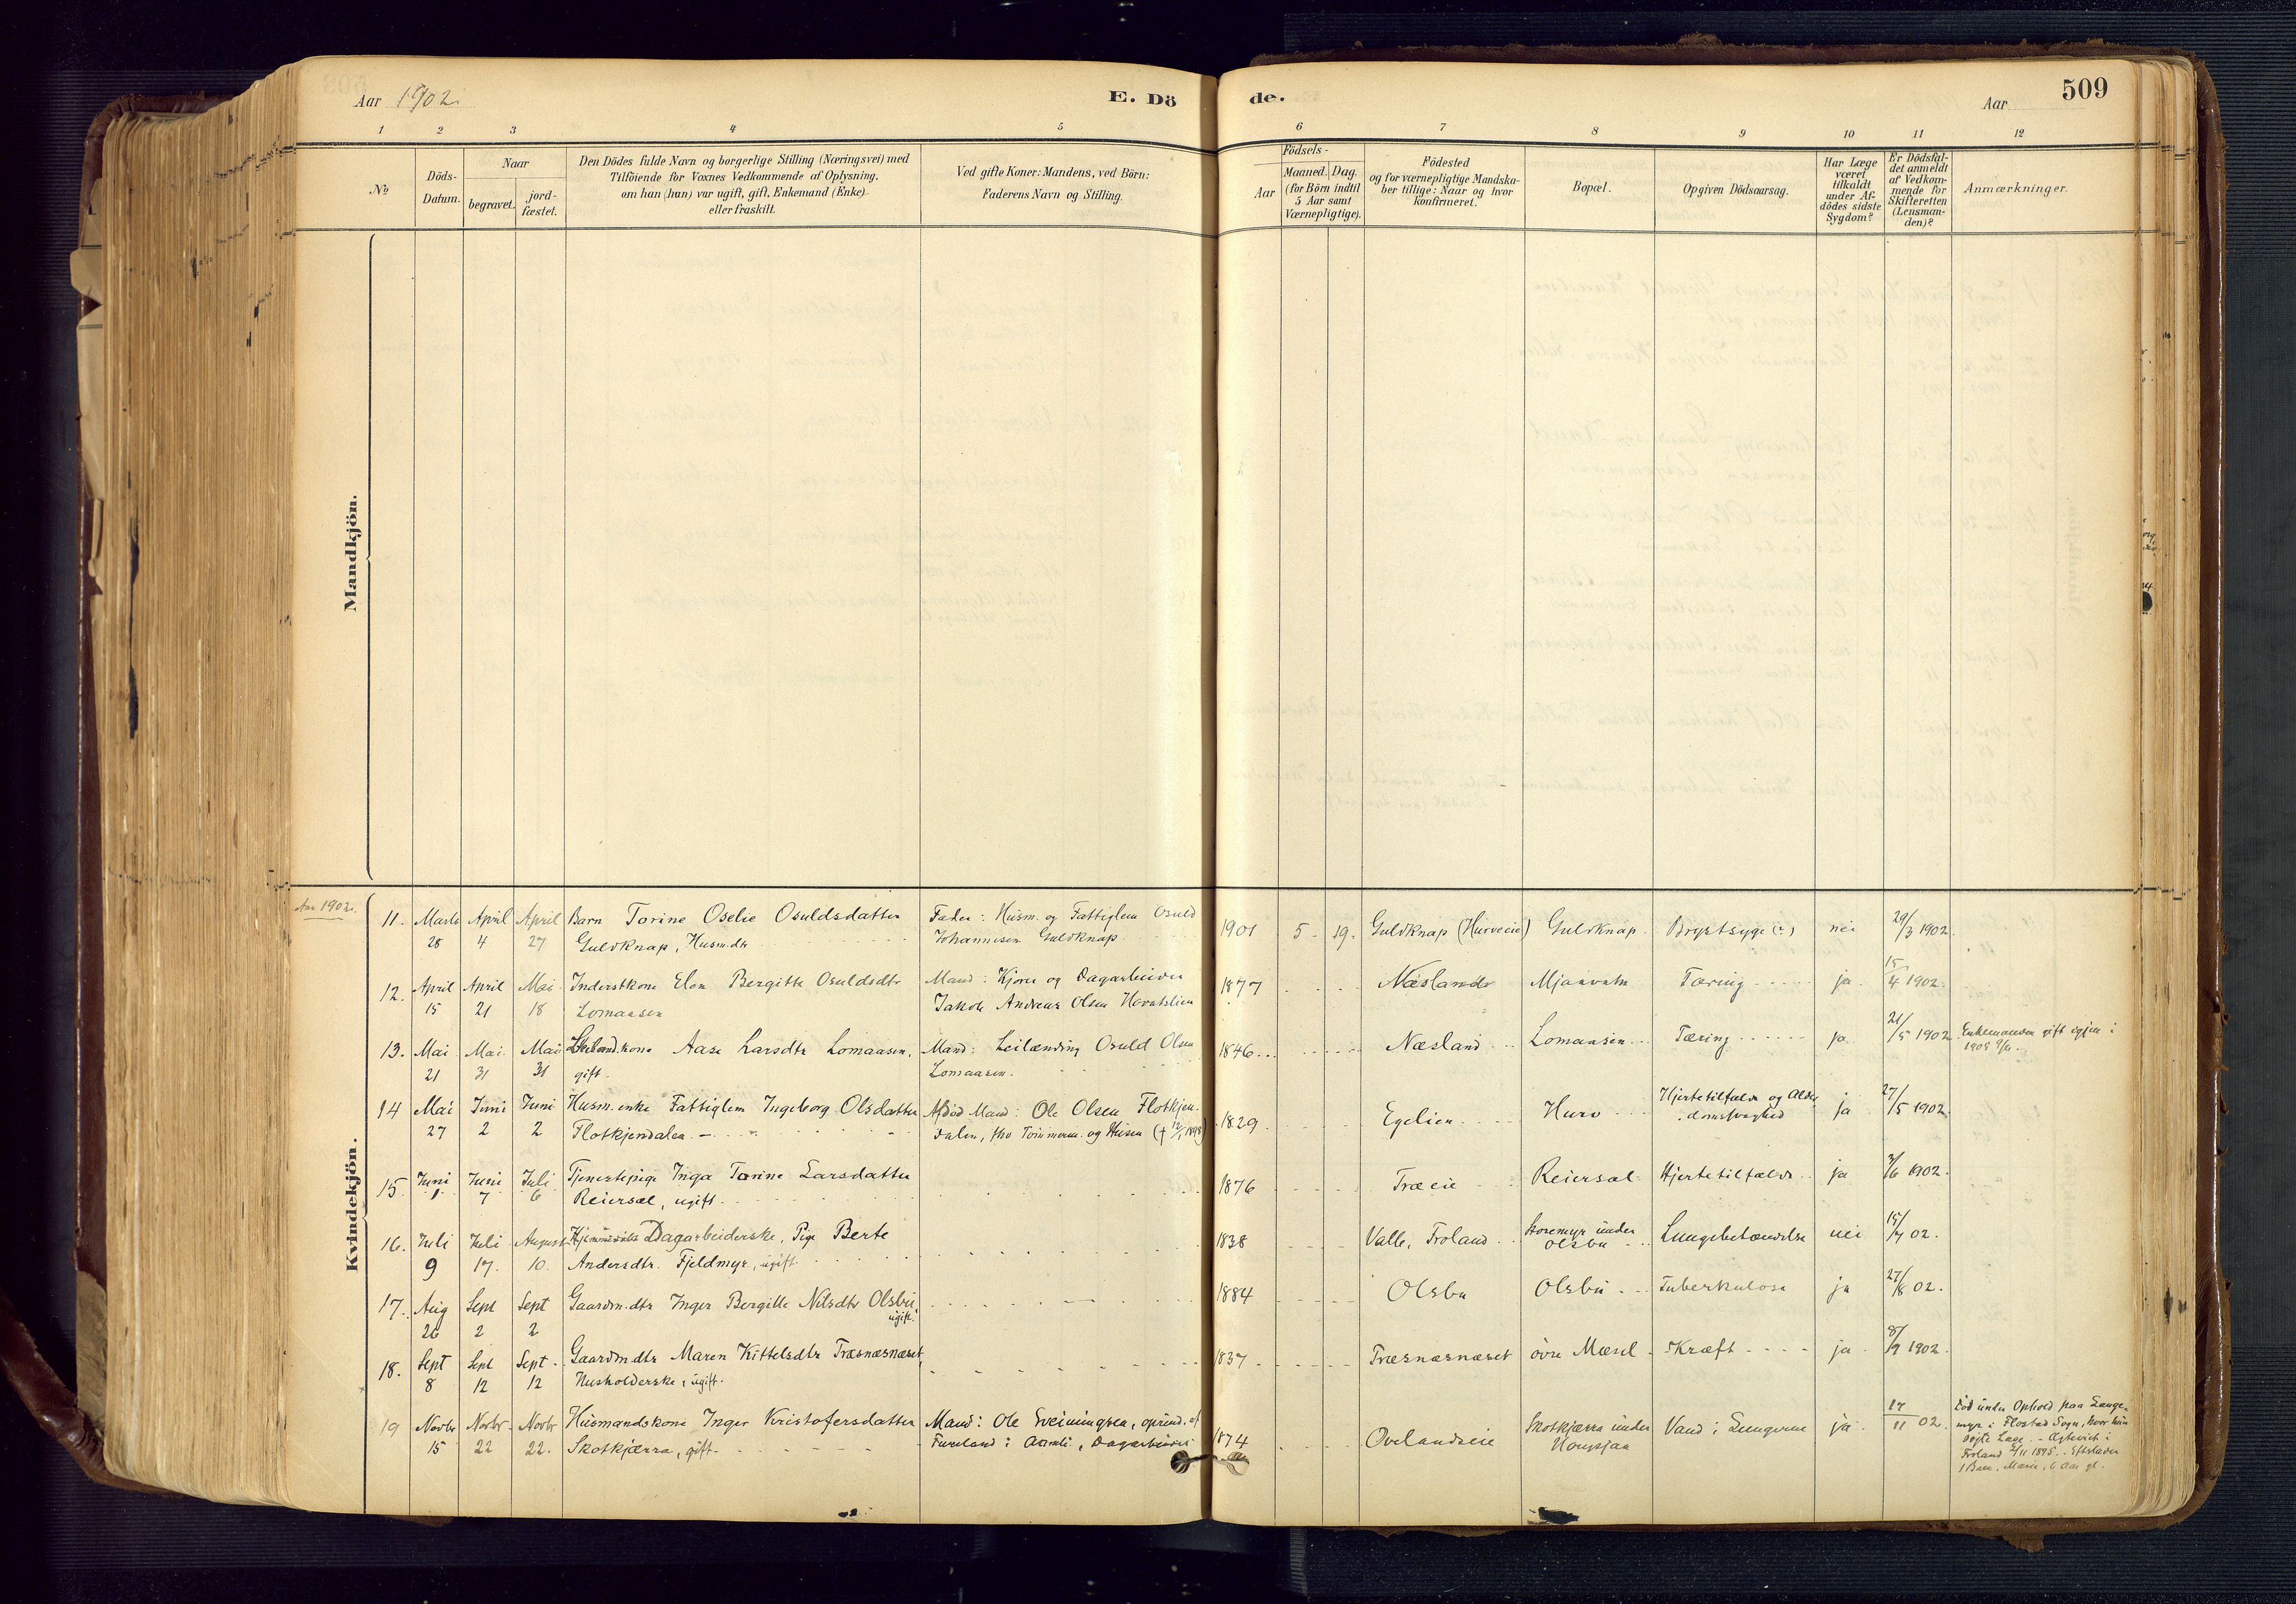 Aar 1902.
E. Dö
de.
Aar
509
1 2 3 4 5 6 7 8 9 10 11 12
No
Döds-
Datum.
Naar
begravet.
jord-
fæstet.
Den Dödes fulde Navn og borgerlige Stilling (Næringsvei) med
Tilföiende for Voxnes Vedkommende af Oplysning,
om han (hun) var ugift, gift, Enkemand (Enke)
eller fraskilt.
Ved gifte Koner: Mandens, ved Börn:
Faderens Navn og Stilling.
Födsels-
Aar
Maaned. Dag.
(for Börn indtil
5 Aar samt
Værnepligtige).
Födested
og for værnepligtige Mandska-
ber tillige: Naar og hvor
konfirmeret.
Bopæl.
Opgiven Dödsaarsag.
Har Læge
været
tilkaldt
under Af-
dödes sidste
Sygdom?
Er Dödsfal-
det anmeldt
af Vedkom-
mende for
Skifteretten
(Lensman-
den)?
Anmærkninger.
Mandkjön.
Kvindekjön.
Aar 1902.
11. Marts April April Barn Torine Oselie Osuldsdatter Fader: Husm. og Fattiglem Osuld
28 4 27 Guldknap, Husm.dtr Johannesen Guldknap.
1901 5 - 19. Guldknap (Hurveeie) Guldknap Brystsyge (?) nei 29/3 1902.
12. April April Mai Inderstkone Elen Bergitte Osuldsdtr Mand: Kjører og Dagarbeider
15 21 18 Lomaasen Jakob Andreas Olsen
1877 Næsland Mjaavatn Tæring ja 15/4 1902.
13. Mai Mai Mai kone Aase Larsdtr Lomaasen, Mand: Leilænding Osuld Olsen
21 31 31 gift. Lomaasen.
1846 Næsland Lomaasen Tæring ja 21/5 1902 Enkemanden gift igjen i
1905
14 Mai Juni Juni Husm.enke Fattiglem Ingeborg Olsdatter Afdød Mand: Ole Olsen Flotkjen-
27 2 2 Flotkjendalen dalen, og Husm (†
1829 Egelien Hurv Hjertetilfælde og Alder-
domssvaghed ja 27/5 1902.
15 Juni Juni Juli Tjenestepige Inga Torine Larsdatter
1 7 6 Reiersøl, ugift.
1876 Træeie Reiersøl Hjertetilfælde ja 3/6 1902.
16. Juli Juli August Dagarbeiderske, Pige Berte
9 17. 10. Andersdtr. Fjeldmyr, ugift.
1838 Valle, Froland under
Olsbu Lungebetændelse nei 15/7 02.
17. Aug Sept Sept Gaardm.dtr Inger Bergitte Nilsdtr Olsbu,
ugift.
26 2 2
1884 Olsbu Olsbu Tuberkulose ja 27/8 02.
18. Sept Sept Sept. Gaardm.dtr Maren Kittelsdtr Træsnæsnæset,
8 12 12 Husholderske, ugift.
1837 Træsnæsnæset øvre Mæsel Kræft ja 8/9 1902.
19 Novbr Novbr Novbr Husmandskone Inger Kristofersdatter Mand: Ole Sveinungsen, oprind. af
15 22 22. Skotkjærra, gift. i Aamli, Dagarbeider
1874 Ovelandseie Skotkjærra under
Vand i Lungerne ja 17/11 02. Död under Ophold paa
i Flostad Sogn, hvor hun
søgte Læge. - Ægteviet i
Froland 1895. Efterlader
1 Barn, Marie, 6 Aar gl.